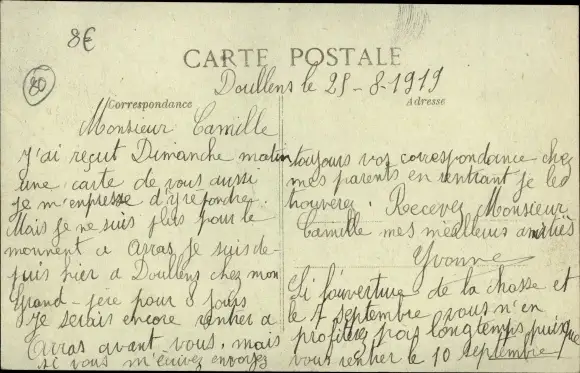 8€
80
CARTE POSTALE
Doullens le 25-8-1919
Correspondance
Adresse
Monsieur Camille
J'ai reçut Dimanche matin
une carte de vous aussi
je m'enpresse d'y répondre.
Mais je ne suis plus pour le
moument a Arras je suis de-
puis hier a Doullens chez mon
Grand-père pour 8 jours
Je serais encore rentrer a
Arras avant vous, mais
si vous m'écrivez envoyez
toujours vos correspondance chez
mes parents en rentrant je les
trouverez. Recevez Monsieur
Camille mes meilleurs amitiés
Yvonne
Si l'ouverture de la chasse et
le 7 septembre vous n'en
profiterez pas longtemps puisque
vous rentrer le 10 septembre!